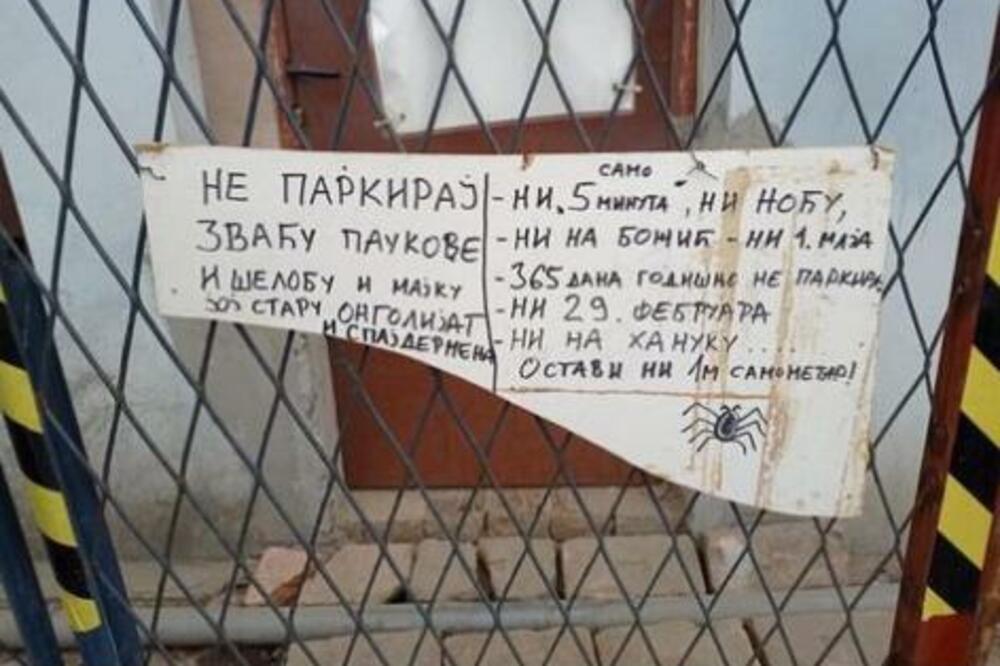 НЕ ПАРКИРАЈ
ЗВАЋУ ПАУКОВЕ
И ШЕЛОБУ И МАЈКУ
ЈОЈ СТАРУ ОНГОЛИЈАТ
И СПАЈДЕРМЕНА
САМО
- НИ „5 МИНУТА", НИ НОЋУ,
- НИ НА БОЖИЋ - НИ 1. МАЈА
- 365 ДАНА ГОДИШЊЕ НЕ ПАРКИРАЈ
- НИ 29. ФЕБРУАРА
- НИ НА ХАНУКУ....
ОСТАВИ НИ 1М САМО